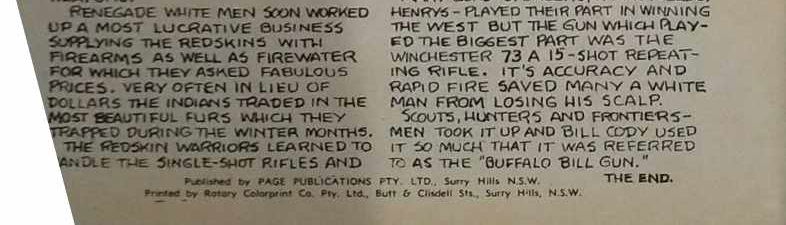 RENEGADE WHITE MEN SOON WORKED
UP A MOST LUCRATIVE BUSINESS
SUPPLYING THE REDSKINS WITH
FIREARMS AS WELL AS FIREWATER
FOR WHICH THEY ASKED FABULOUS
PRICES. VERY OFTEN IN LIEU OF
DOLLARS THE INDIANS TRADED IN THE
MOST BEAUTIFUL FURS WHICH THEY
TRAPPED DURING THE WINTER MONTHS.
THE REDSKIN WARRIORS LEARNED TO
ANDLE THE SINGLE-SHOT RIFLES AND
HENRYS - PLAYED THEIR PART IN WINNING
THE WEST BUT THE GUN WHICH PLAY-
ED THE BIGGEST PART WAS THE
WINCHESTER 73 A 15-SHOT REPEAT-
ING RIFLE. IT'S ACCURACY AND
RAPID FIRE SAVED MANY A WHITE
MAN FROM LOSING HIS SCALP.
SCOUTS, HUNTERS AND FRONTIERS-
MEN TOOK IT UP AND BILL CODY USED
IT SO MUCH THAT IT WAS REFERRED
TO AS THE "BUFFALO BILL GUN."
THE END.
Published by PAGE PUBLICATIONS PTY. LTD., Surry Hills N.S.W.
Printed by Rotary Colorprint Co. Pty. Ltd., Butt & Clisdell Sts., Surry Hills, N.S.W.